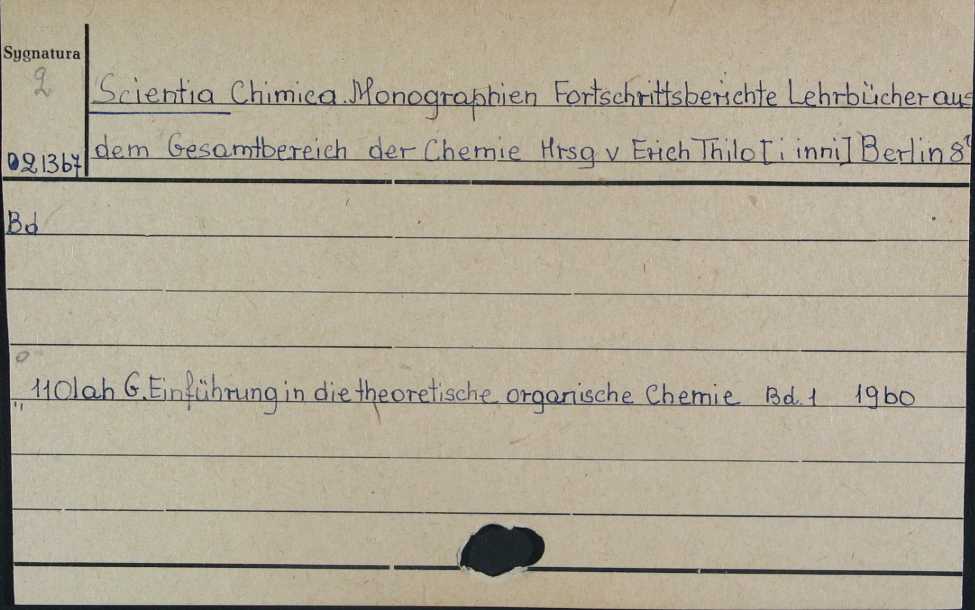 Sygnatura
2
Scientia Chimica. Monographien Fortschrittsberichte Lehrbücher aus
021367 dem Gesamtbereich der Chemie Hrsg v Erich Thilo [i inni] Berlin 8°
Bd
" 11 Olah G. Einführung in die theoretische organische Chemie Bd. 1 1960